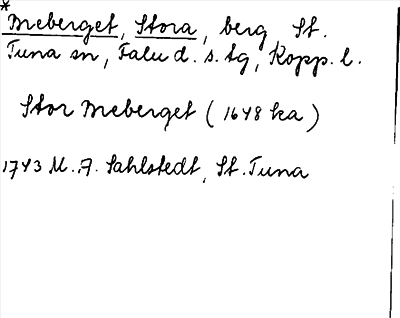 * Mreberget, Stora, berg St.
Tuna sn, Falu d. s. tg, Kopp. l.
Stor Mreberget (1648 ka)
1743 M. A. Sahlstedt, St. Tuna